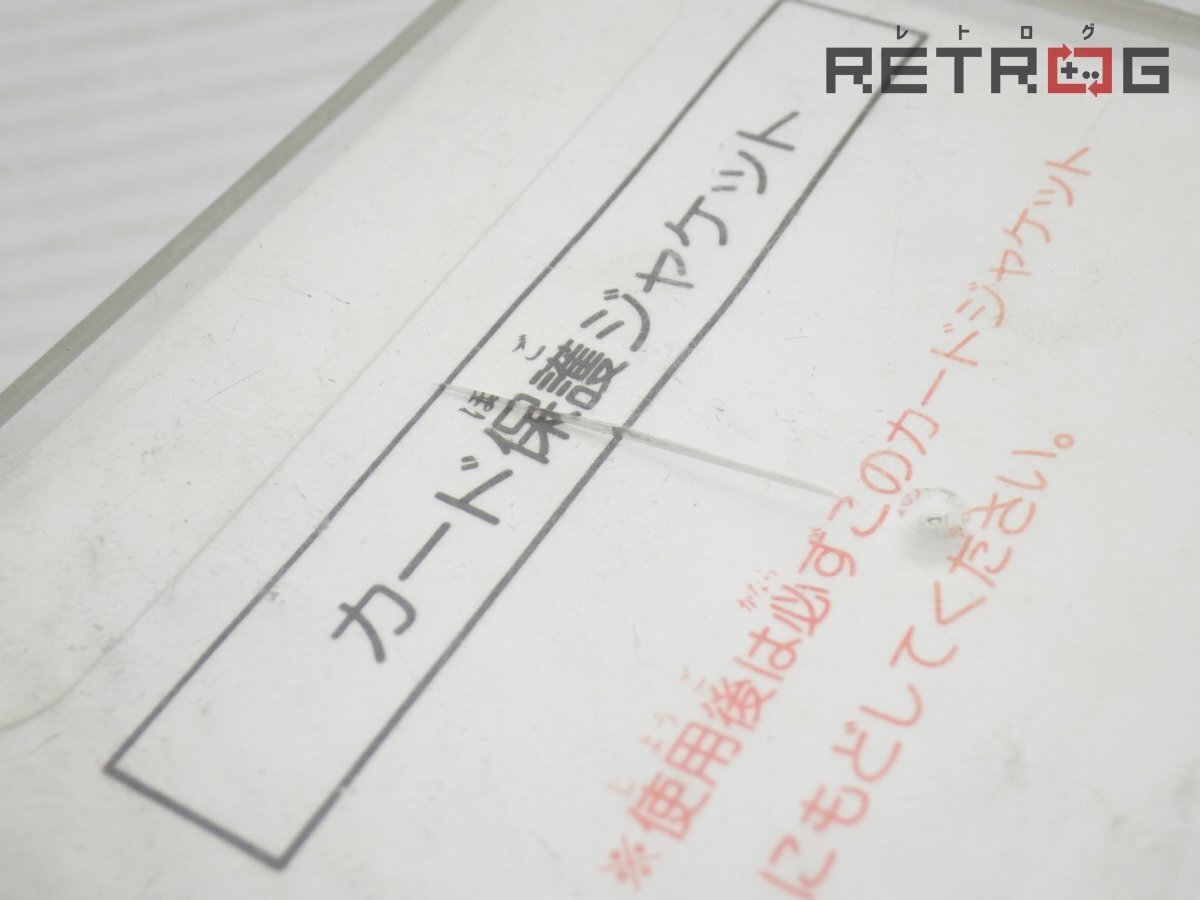 レトログ
RETROG
カード保護ジャケット
ほご
※使用後は必ずこのカードジャケット
しようご かなら
にもどしてください。